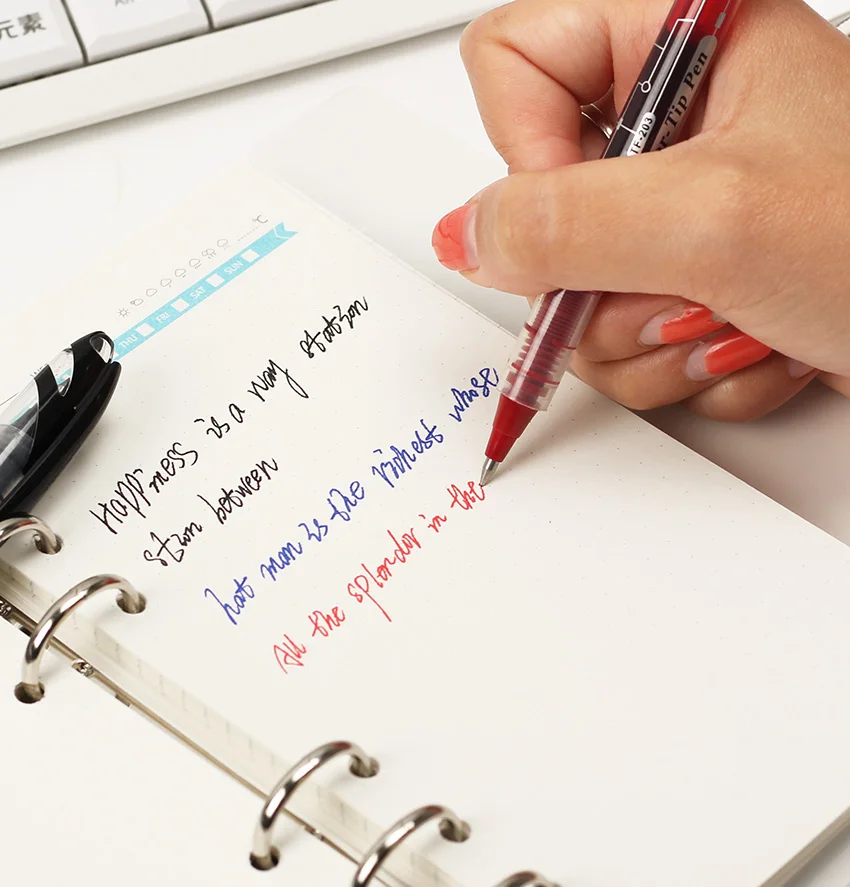 元素
Al
THU FRI SAT SUN
℃
Happiness is a way station
stwn between
hat man is the richest whose
All the splendor in the
TF-203
r-Tip Pen